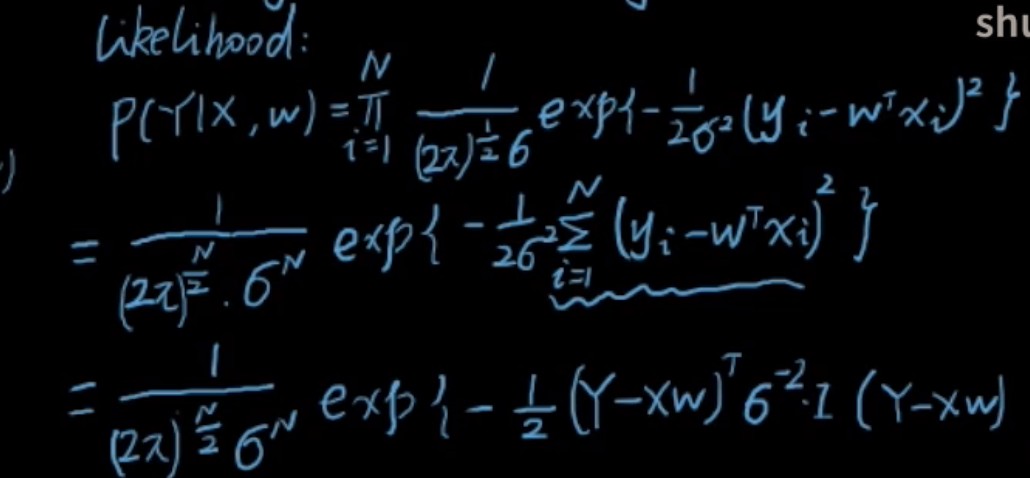 shu
Likelihood:
P(Y|X, w) = ∏_{i=1}^{N} 1/((2π)^{1/2} σ) exp{-1/(2σ²) (y_i - w^T x_i)²}
)
= 1/((2π)^{N/2} · σ^N) exp{-1/(2σ²) ∑_{i=1}^{N} (y_i - w^T x_i)²}
= 1/((2π)^{N/2} σ^N) exp{-1/2 (Y - Xw)^T σ^{-2} · I (Y - Xw)